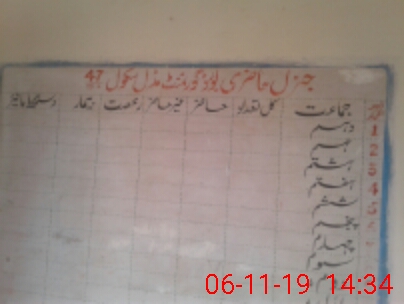 جنرل حاضری بورڈ گورنمنٹ مڈل سکول 47
جماعت کل تعداد حاضر غیر حاضر رخصت بیمار
1 دہم
2 نہم
3 ہشتم
4 ہفتم
5 ششم
پنجم
چہارم
سوم
06-11-19 14:34